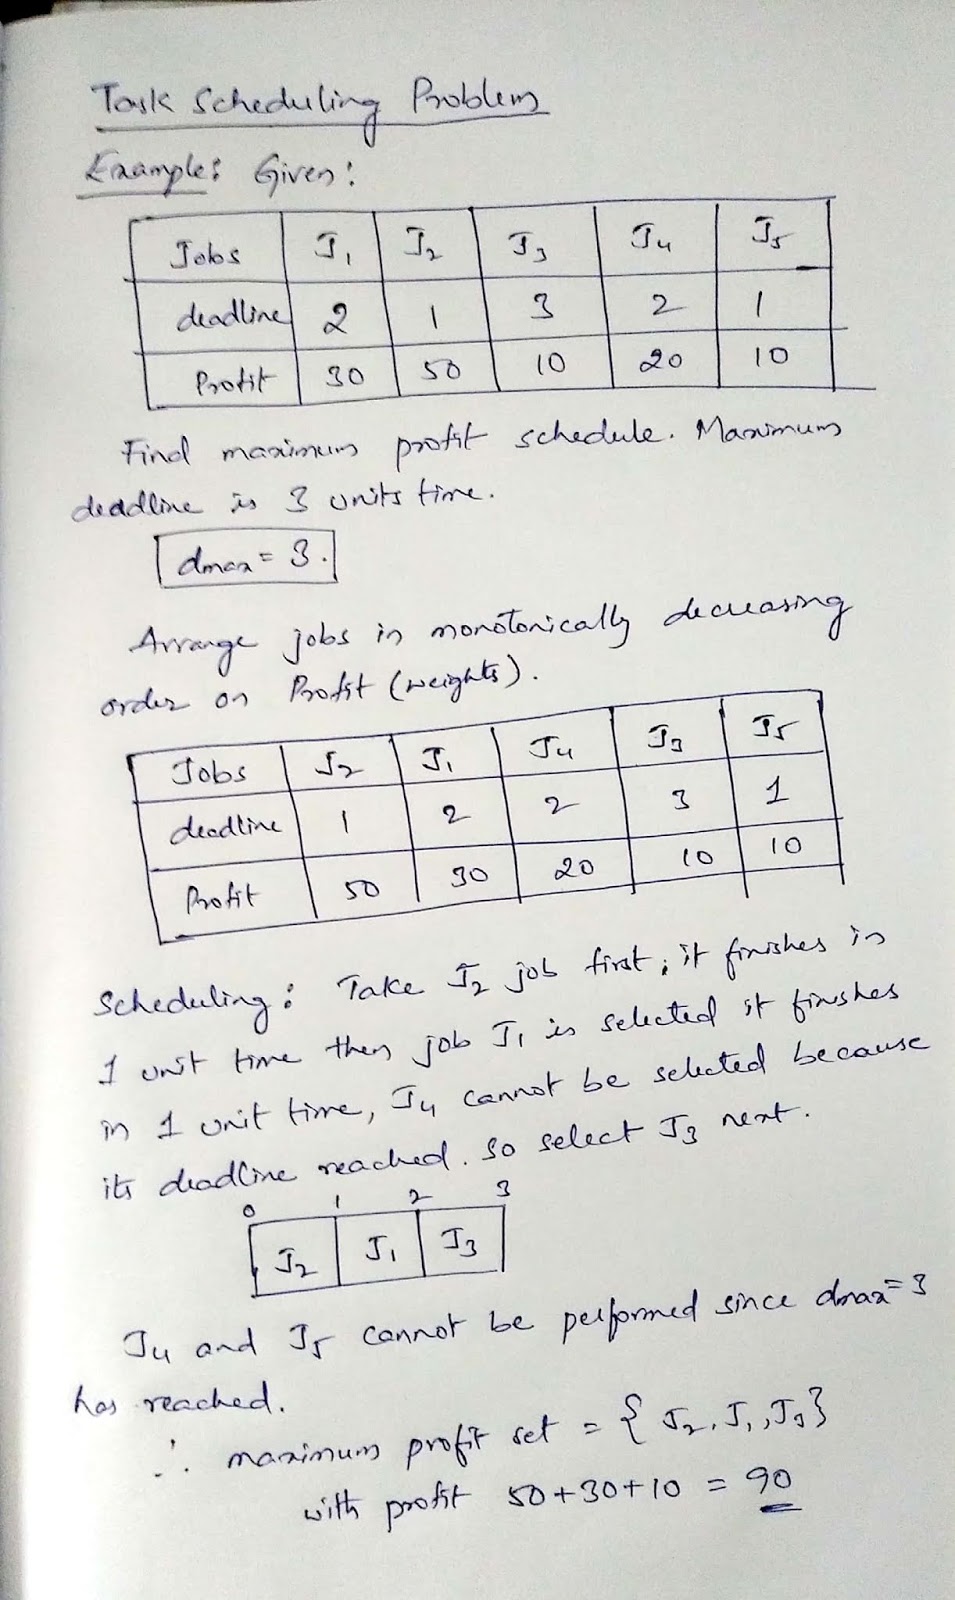 Task Scheduling Problem
Example: Given:
Jobs J1 J2 J3 J4 J5
deadline 2 1 3 2 1
Profit 30 50 10 20 10
Find maximum profit schedule. Maximum
deadline is 3 units time.
dmax = 3.
Arrange jobs in monotonically decreasing
order on Profit (weights).
Jobs J2 J1 J4 J3 J5
deadline 1 2 2 3 1
Profit 50 30 20 10 10
Scheduling: Take J2 job first, it finishes in
1 unit time then job J1 is selected it finishes
in 1 unit time, J4 cannot be selected because
its deadline reached. So select J3 next.
0 1 2 3
J2 J1 J3
J4 and J5 cannot be performed since dmax=3
has reached.
∴ maximum profit set = { J2, J1, J3}
with profit 50+30+10 = 90